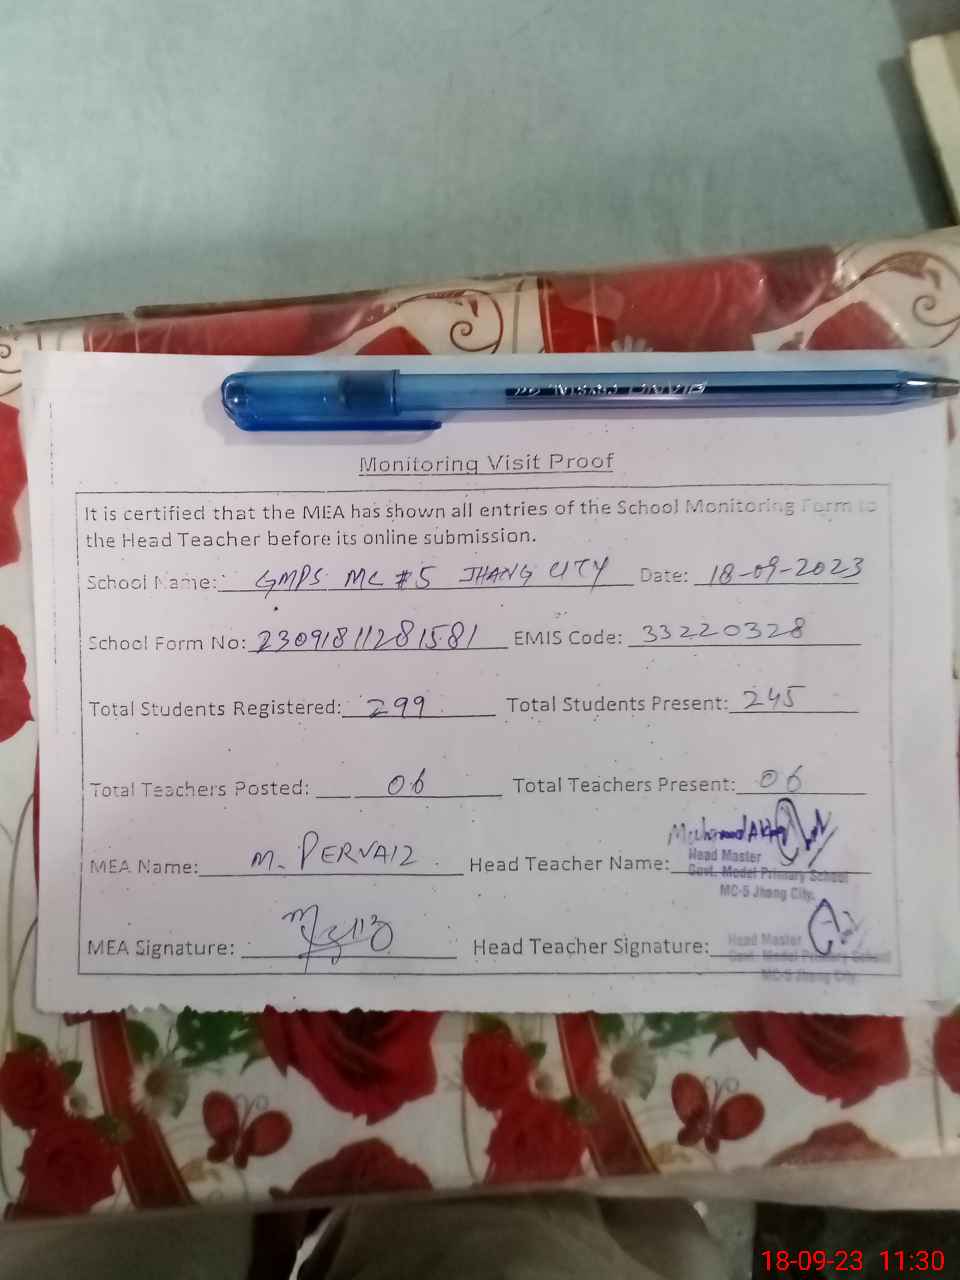 Monitoring Visit Proof
It is certified that the MEA has shown all entries of the School Monitoring Form to
the Head Teacher before its online submission.
School Name: GMPS MC #5 JHANG CITY Date: 18-09-2023
School Form No: 23091811281581 EMIS Code: 33220328
Total Students Registered: 299 Total Students Present: 245
Total Teachers Posted: 06 Total Teachers Present: 06
MEA Name: M. PERVAIZ Head Teacher Name:
Head Master
Govt. Model Primary School
MC-5 Jhang City.
MEA Signature: Head Teacher Signature:
Head Master
Govt. Model Primary School
MC-5 Jhang City.
18-09-23 11:30